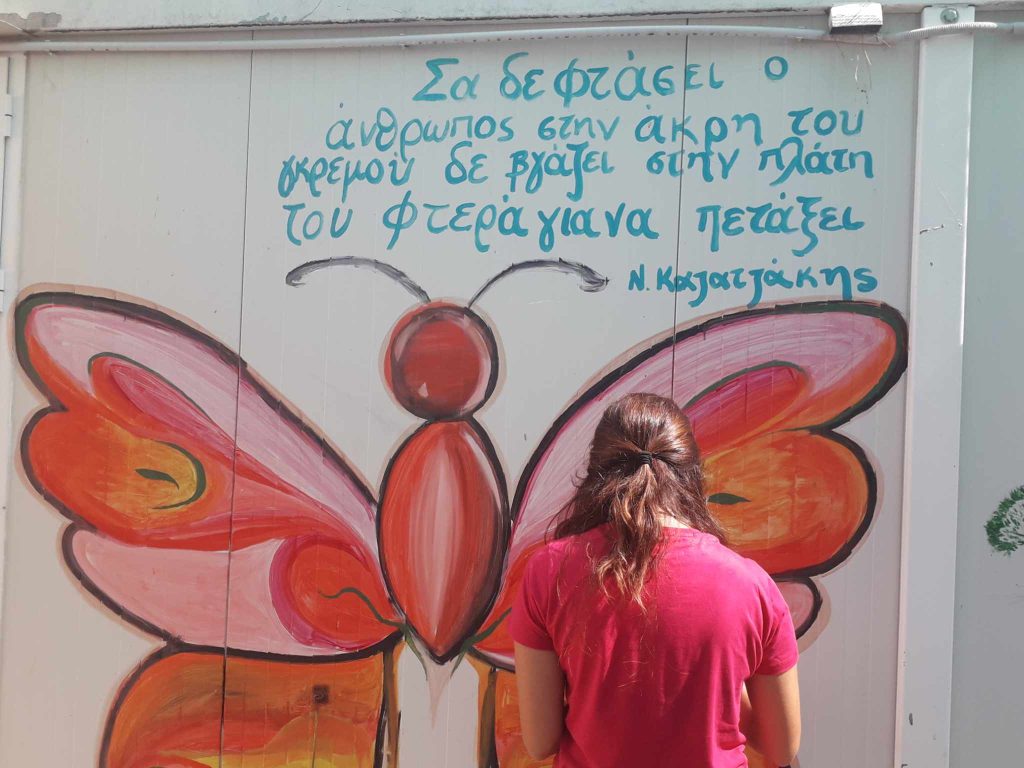 Σα δε φτάσει ο
άνθρωπος στην άκρη του
γκρεμού δε βγάζει στην πλάτη
του φτερά για να πετάξει
Ν. Καζατζάκης